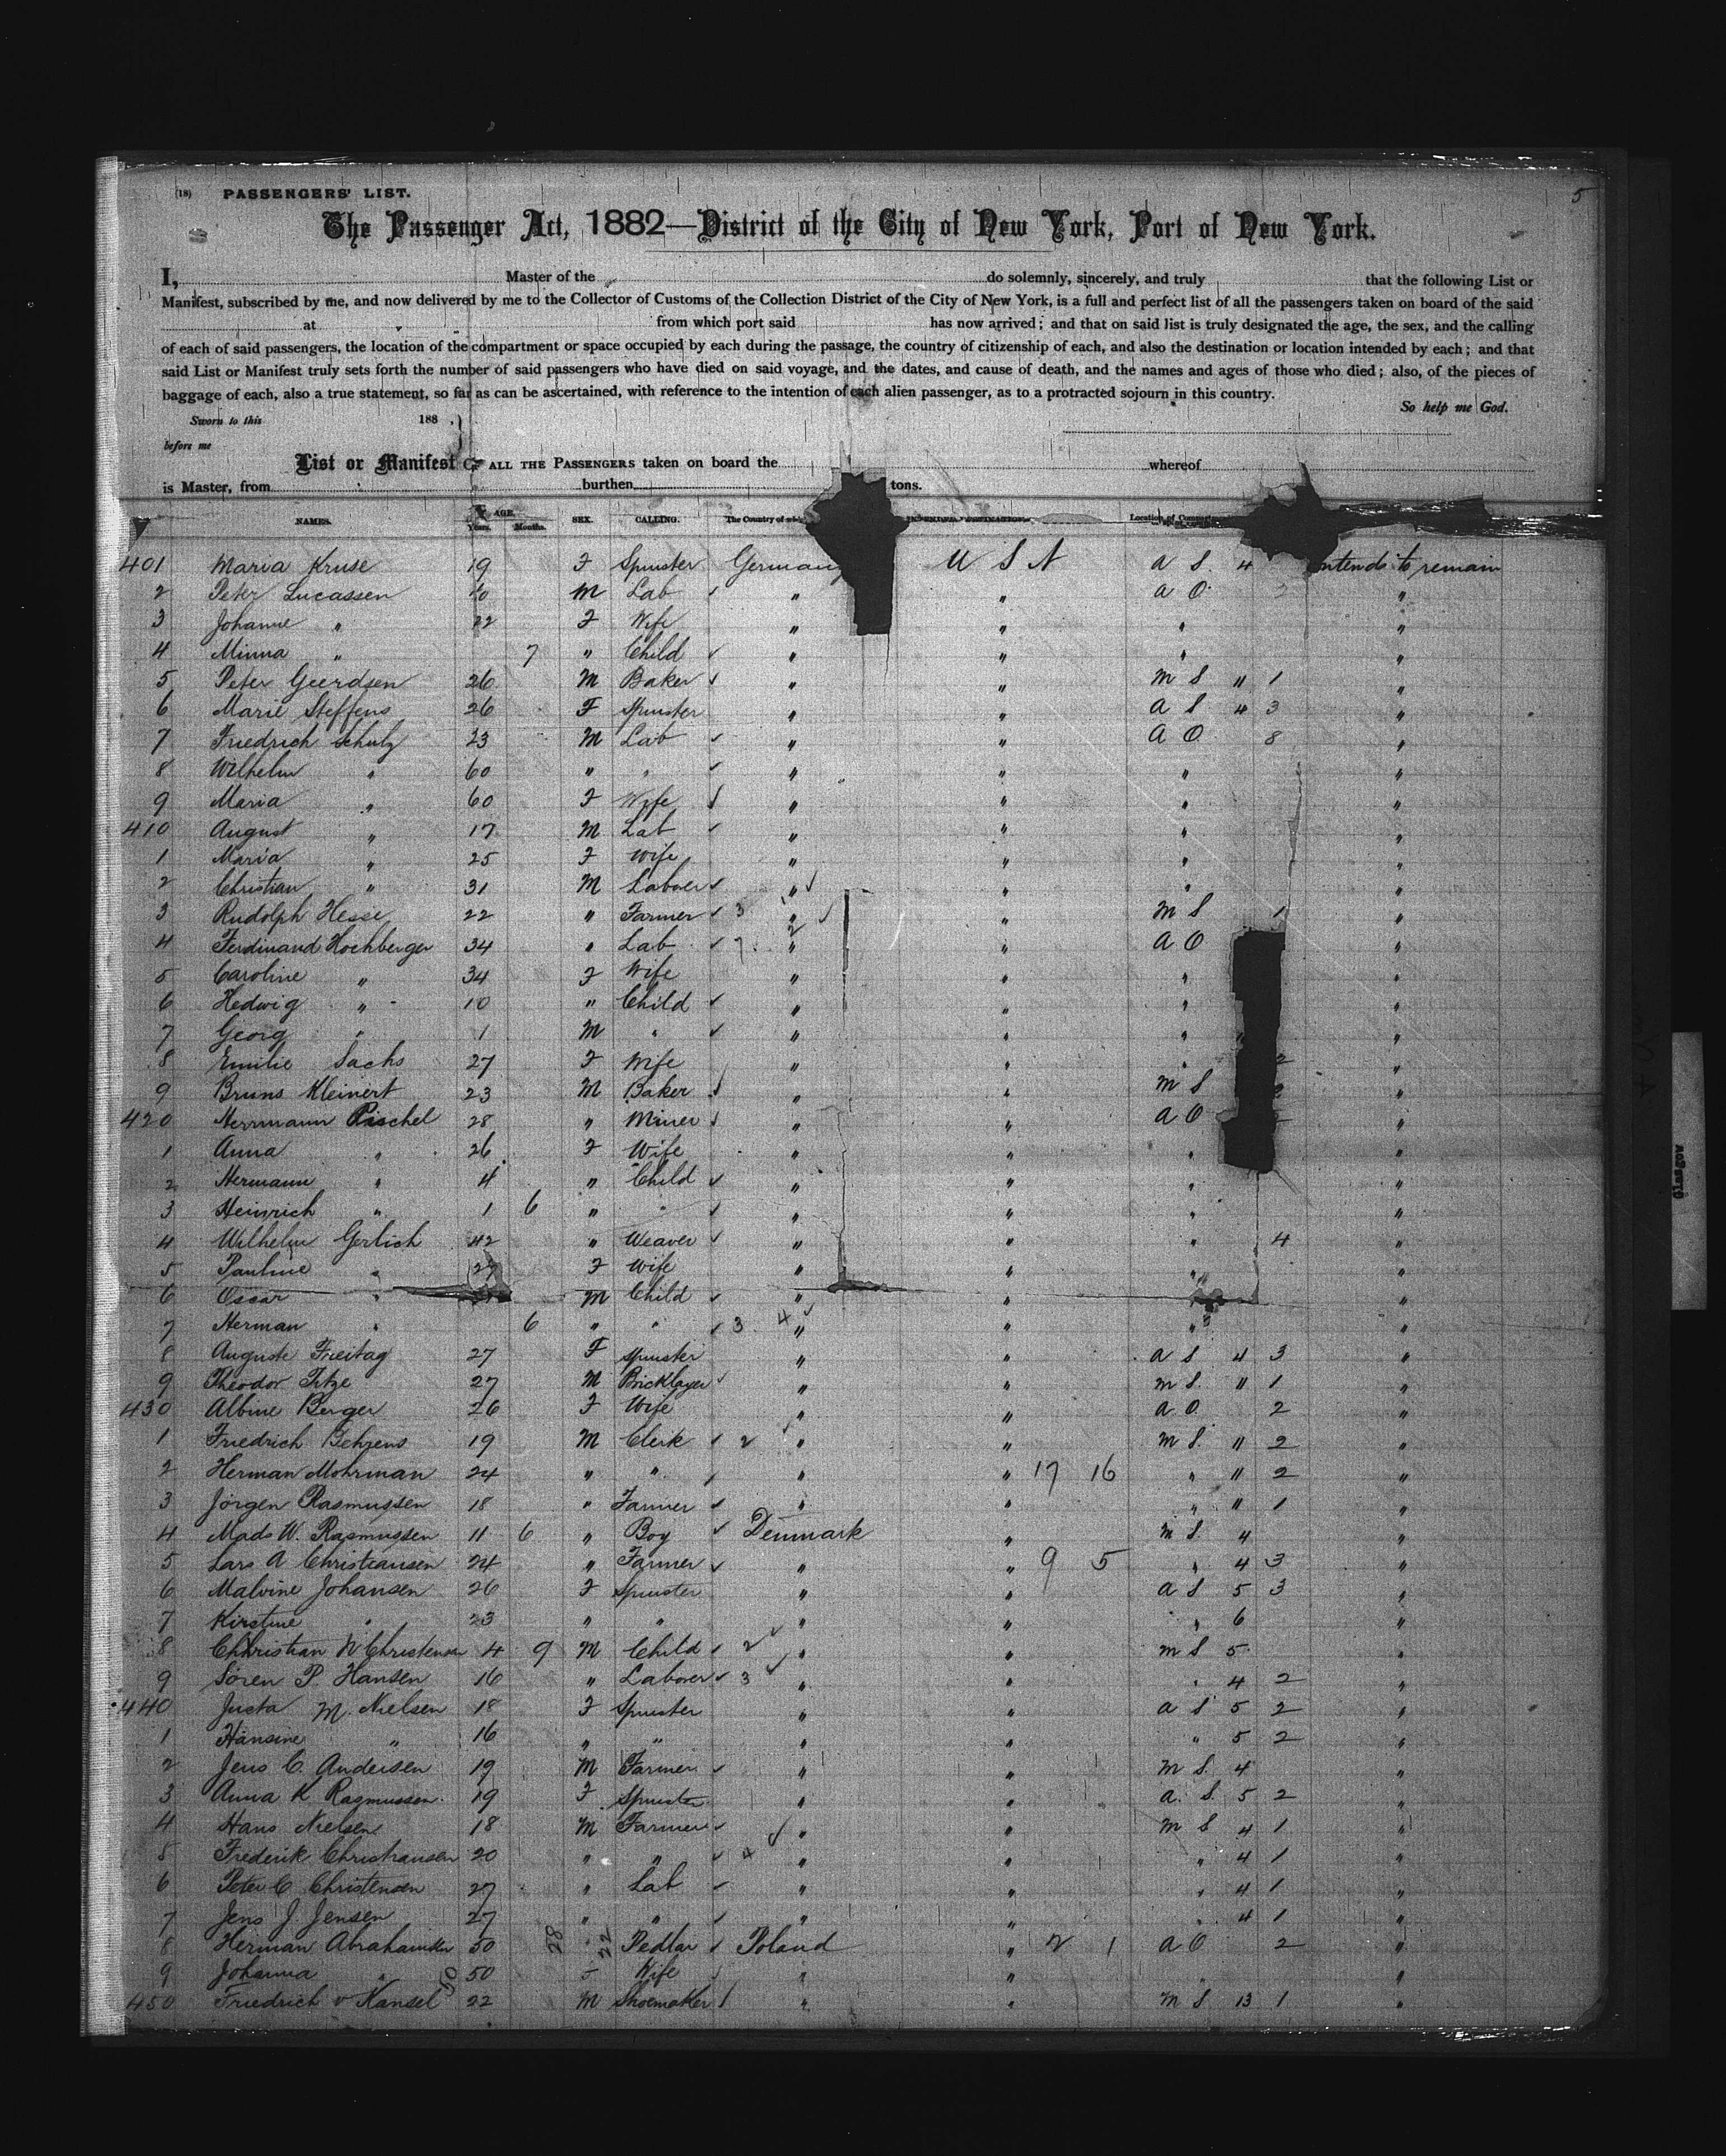 5
(18) PASSENGERS' LIST.
The Passenger Act, 1882—District of the City of New York, Port of New York.
I, Master of the do solemnly, sincerely, and truly that the following List or
Manifest, subscribed by me, and now delivered by me to the Collector of Customs of the Collection District of the City of New York, is a full and perfect list of all the passengers taken on board of the said
at from which port said has now arrived; and that on said list is truly designated the age, the sex, and the calling
of each of said passengers, the location of the compartment or space occupied by each during the passage, the country of citizenship of each, and also the destination or location intended by each; and that
said List or Manifest truly sets forth the number of said passengers who have died on said voyage, and the dates, and cause of death, and the names and ages of those who died; also, of the pieces of
baggage of each, also a true statement, so far as can be ascertained, with reference to the intention of each alien passenger, as to a protracted sojourn in this country.
So help me God.
Sworn to this 188 ,
before me
List or Manifest OF ALL THE PASSENGERS taken on board the whereof
is Master, from burthen tons.
NAMES. AGE. Years. Months. SEX. CALLING. The Country of INTENDED DESTINATION Location of
401 Maria Kruse 19 F Spinster Germany U S A a S. 4 intends to remain
2 Peter Lucassen M Lab " " a O. 2 "
3 Johanne " 22 F Wife " " " "
4 Minna " 7 " Child " " " "
5 Peter Geerdsen 26 M Baker " " M S " 1 "
6 Marie Steffens 26 F Spinster " " a S 4 3 "
7 Friedrich Schulz 23 M Lab " " a O 8 "
8 Wilhelm " 60 " " " " " "
9 Maria " 60 F Wife " " " "
410 August " 17 M Lab " " " "
1 Maria " 25 F Wife " " " "
2 Christian " 31 M Laborer " " " "
3 Rudolph Hesse 22 " Farmer 3 " " M S 1 "
4 Ferdinand Hochberger 34 " Lab 7 2 " " a O "
5 Caroline " 34 F Wife " " " "
6 Hedwig " 10 " Child " " " "
7 Georg " 1 M " " " " "
8 Emilie Sachs 27 F Wife " " " 2 "
9 Bruns Kleinert 23 M Baker " " M S "
420 Herrmann Pischel 28 " Miner " " a O "
1 Anna " 26 F Wife " " " "
2 Hermann " 4 " Child " " " "
3 Heinrich " 1 6 " " " " " "
4 Wilhelm Gerlich 42 " Weaver " " " 4 "
5 Pauline " 27 F Wife " " " "
6 Oscar " M Child " " " "
7 Herman " 6 " " 3 4 " " " "
8 Auguste Freitag 27 F Spinster " " a S 4 3 "
9 Theodor Titze 27 M Bricklayer " " M S. " 1 "
430 Albine Berger 26 F Wife " " a O. 2 "
1 Friedrich Behrens 19 M Clerk 2 " " M S. " 2 "
2 Herman Mohrman 24 " " " " 17 16 " " 2 "
3 Jörgen Rasmussen 18 " Farmer " " " " 1 "
4 Mads W. Rasmussen 11 6 " Boy Denmark " M S. 4 "
5 Lars A Christiansen 24 " Farmer " " 9 5 " 4 3 "
6 Malvine Johansen 26 F Spinster " " a S 5 3 "
7 Kirstine " 23 " " " " " 6 "
8 Christian N Christensen 4 9 M Child 2 " " M S 5 "
9 Sören P. Hansen 16 " Laborer 3 " " " 4 2 "
440 Justa M. Nielsen 18 F Spinster " " a S 5 2 "
1 Hansine " 16 " " " " " 5 2 "
2 Jens C. Andersen 19 M Farmer " " M S. 4 "
3 Anna K Rasmussen 19 F Spinster " " a. S. 5 2 "
4 Hans Nielsen 18 M Farmer " " M S 4 1 "
5 Frederik Christiansen 20 " " 4 " " " 4 1 "
6 Peter C Christensen 27 " Lab " " " 4 1 "
7 Jens J. Jensen 27 " " " " " 4 1 "
8 Herman Abrahamsen 50 28 " 22 Pedlar Poland " 2 1 a O 2 "
9 Johanna " 50 50 F Wife " " " "
450 Friedrich v Kansel 22 M Shoemaker " " M S 13 1 "
Glasgow